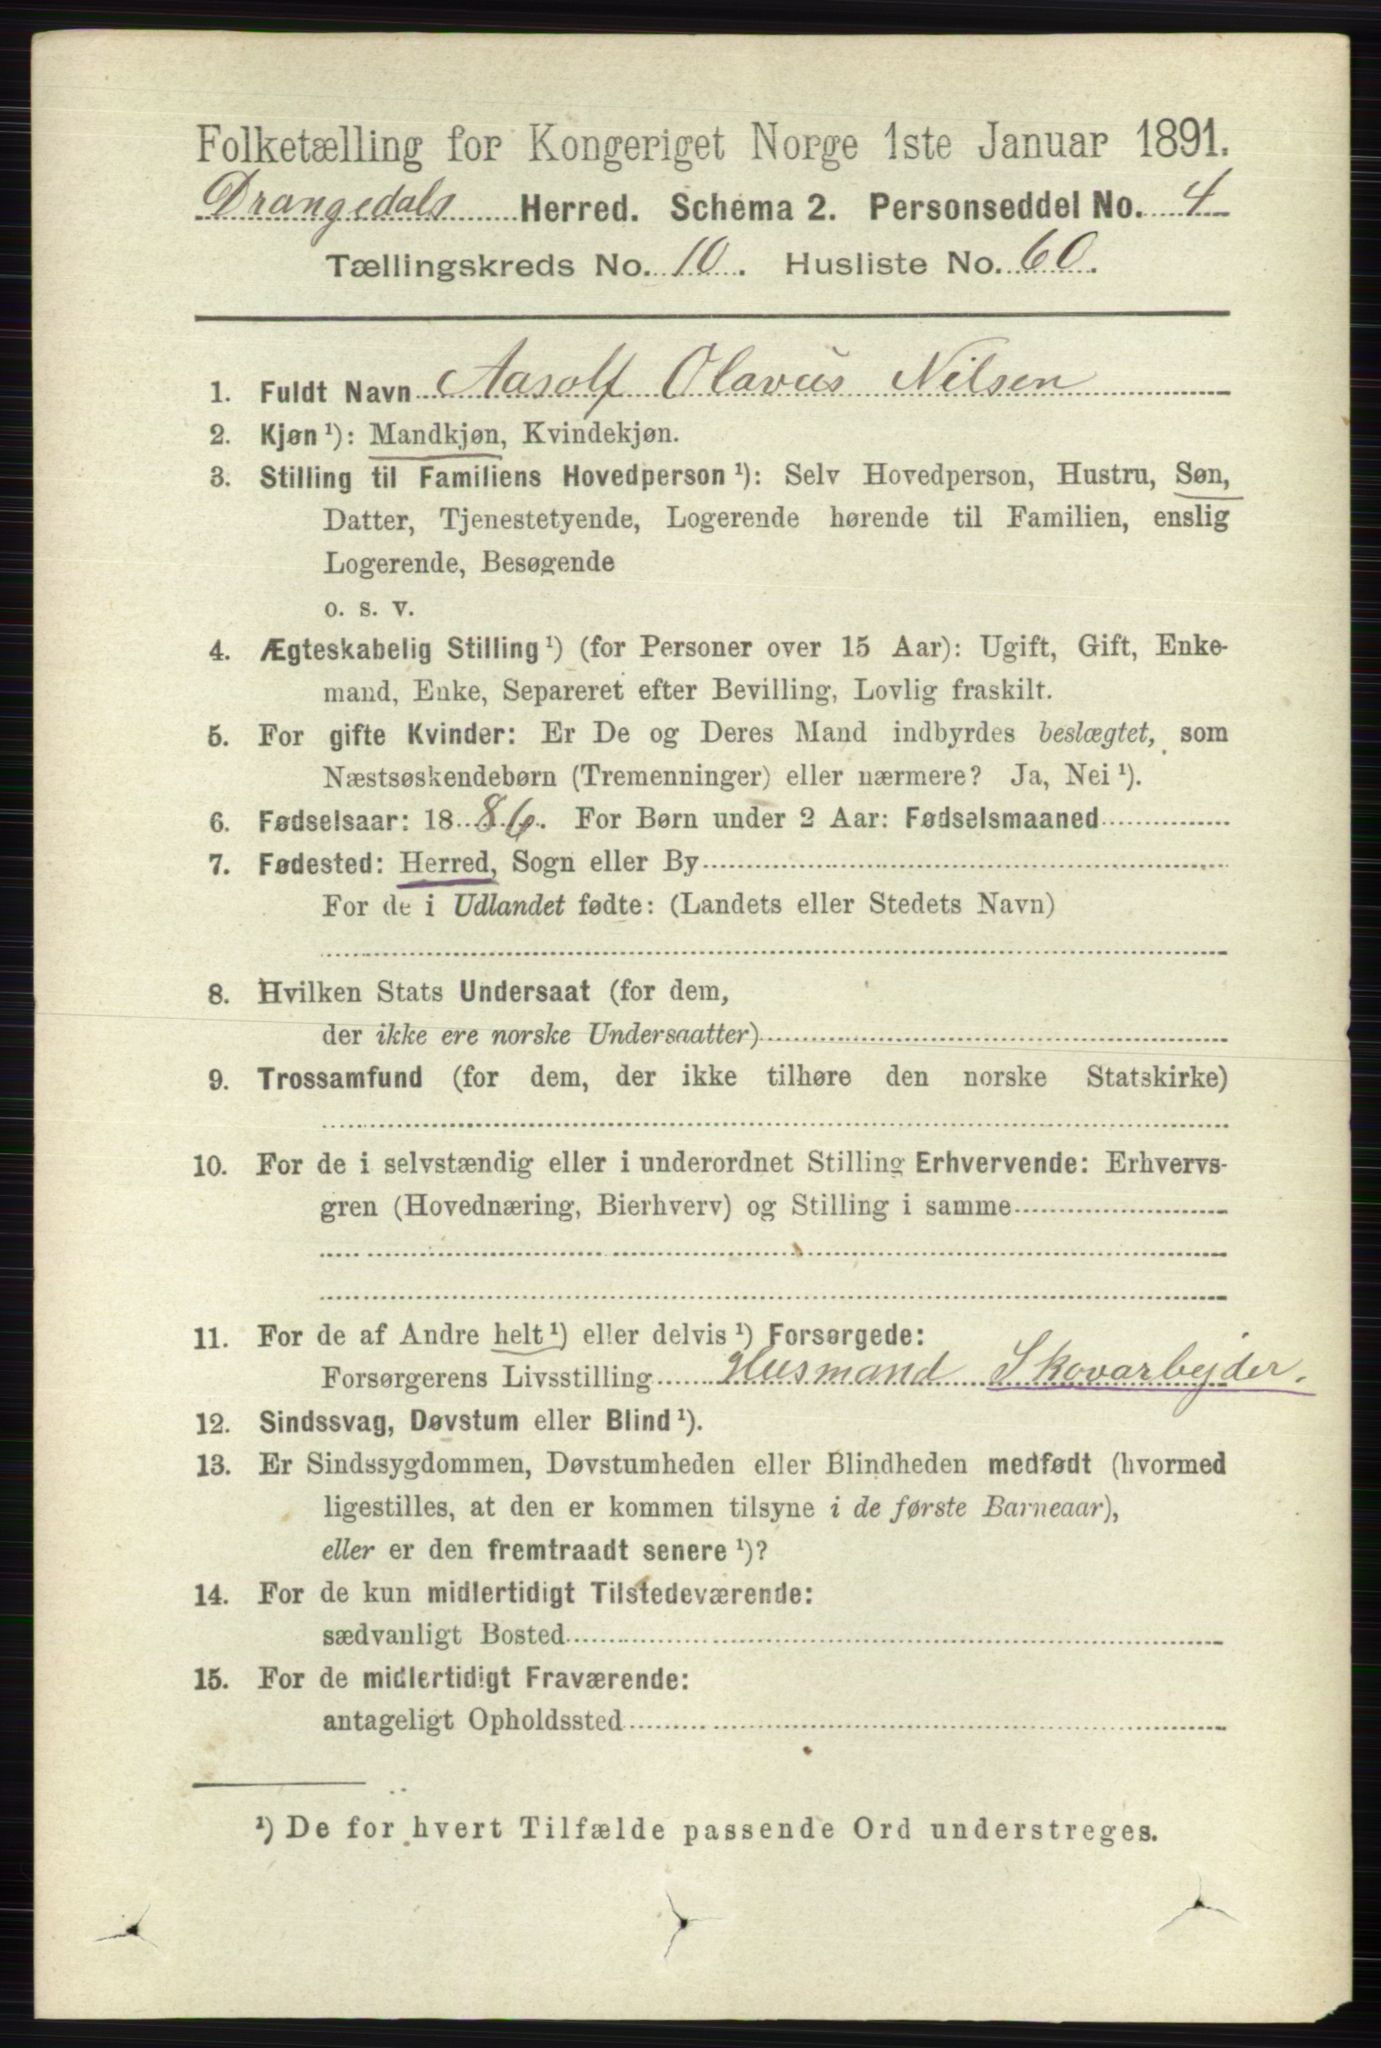 Folketælling for Kongeriget Norge 1ste Januar 1891.
Drangedals Herred. Schema 2. Personseddel No. 4
Tællingskreds No. 10. Husliste No. 60.
1. Fuldt Navn Aasolf Olavus Nilsen
2. Kjøn ¹): Mandkjøn, Kvindekjøn.
3. Stilling til Familiens Hovedperson ¹): Selv Hovedperson, Hustru, Søn,
Datter, Tjenestetyende, Logerende hørende til Familien, enslig
Logerende, Besøgende
o. s. v.
4. Ægteskabelig Stilling ¹) (for Personer over 15 Aar): Ugift, Gift, Enke-
mand, Enke, Separeret efter Bevilling, Lovlig fraskilt.
5. For gifte Kvinder: Er De og Deres Mand indbyrdes beslægtet, som
Næstsøskendebørn (Tremenninger) eller nærmere? Ja, Nei ¹).
6. Fødselsaar: 1886. For Børn under 2 Aar: Fødselsmaaned
7. Fødested: Herred, Sogn eller By
For de i Udlandet fødte: (Landets eller Stedets Navn)
8. Hvilken Stats Undersaat (for dem,
der ikke ere norske Undersaatter)
9. Trossamfund (for dem, der ikke tilhøre den norske Statskirke)
10. For de i selvstændig eller i underordnet Stilling Erhvervende: Erhvervs-
gren (Hovednæring, Bierhverv) og Stilling i samme
11. For de af Andre helt ¹) eller delvis ¹) Forsørgede:
Forsørgerens Livsstilling Husmand Skovarbejder.
12. Sindssvag, Døvstum eller Blind ¹).
13. Er Sindssygdommen, Døvstumheden eller Blindheden medfødt (hvormed
ligestilles, at den er kommen tilsyne i de første Barneaar),
eller er den fremtraadt senere ¹)?
14. For de kun midlertidigt Tilstedeværende:
sædvanligt Bosted
15. For de midlertidigt Fraværende:
antageligt Opholdssted
¹) De for hvert Tilfælde passende Ord understreges.